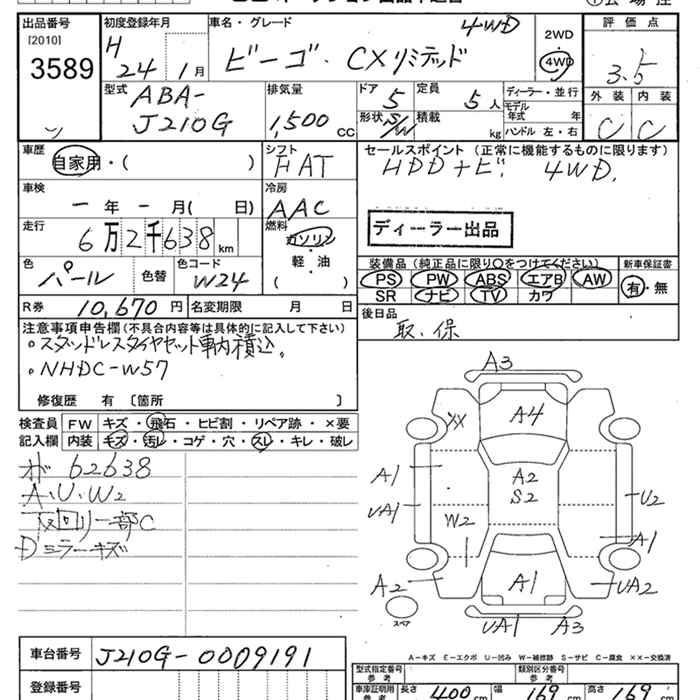 出品番号
[2010]
3589
初度登録年月
H 24 年 1 月
車名・グレード
4WD
ビーゴ. CXリミテッド
2WD
4WD
評価点
3.5
外装 内装
C C
型式
ABA-
J210G
排気量
1,500 CC
ドア 5
定員 5 人
形状 S/W
積載 kg
ディーラー・並行
モデル年式 年
ハンドル 左・右
車歴
自家用・( )
シフト
FAT
セールスポイント (正常に機能するものに限ります)
HDDナビ. 4WD.
ディーラー出品
車検
ー年ー月( 日)
冷房
AAC
走行
6万2千638km
燃料
ガソリン
軽・油
( )
色
パール
色替
色コード
W24
装備品(純正品に限り○をつけてください)
PS PW ABS エアB AW
SR ナビ TV カワ
新車保証書
有・無
R券 10,670 円
名変期限 月 日
後日品
取.保
注意事項申告欄(不具合内容等は具体的に記入して下さい)
・スタッドレスタイヤセット車内積込。
・NHDC-W57
修復歴 有〔箇所 〕
検査員記入欄
FW キズ・飛石・ヒビ割・リペア跡・×要
内装 キズ・汚レ・コゲ・穴・スレ・キレ・破レ
オド 62638
A.U.W2
下回リ一部C
Dミラーキズ
A3
XX
A4
A1
A2
S2
UA1
W2
U2
A1
A2
A1
UA2
スペア
UA1
A3
A-キズ E-エクボ U-凹み W-補修跡 S-サビ C-腐食 ××-交換済
車台番号
J210G-0009191
登録番号
型式指定番号
参考
類別区分番号
参考
車庫証明用
参考
長さ 400 cm
幅 169 cm
高さ 169 cm